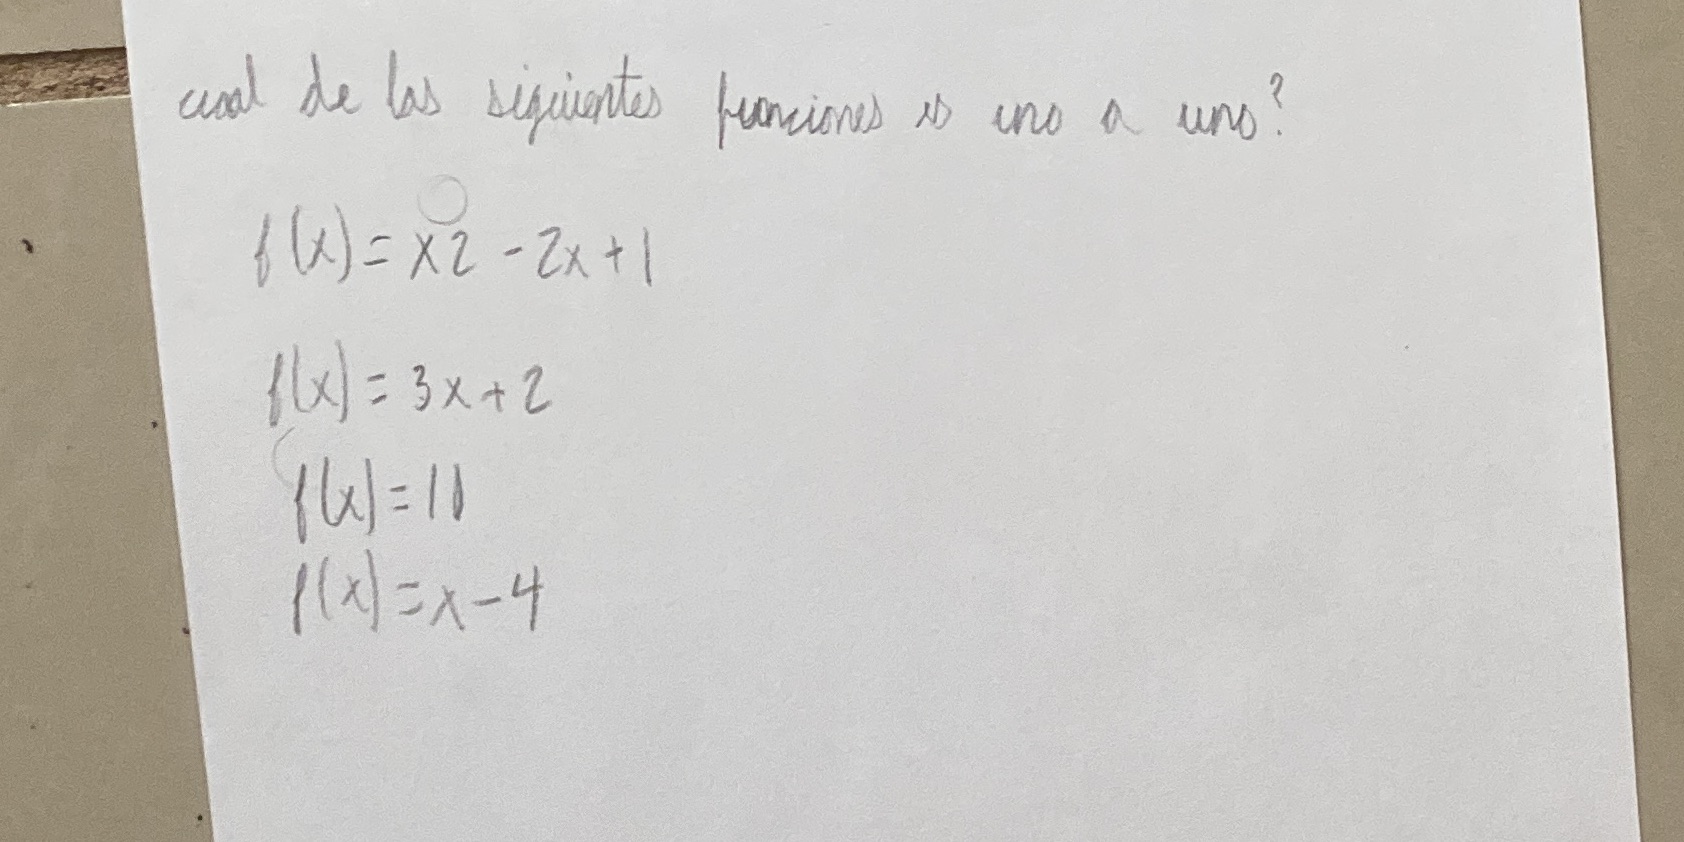 cual de las siguientes funciones es uno a uno?
f(x) = x2 - 2x + 1
f(x) = 3x + 2
f(x) = 11
f(x) = x - 4